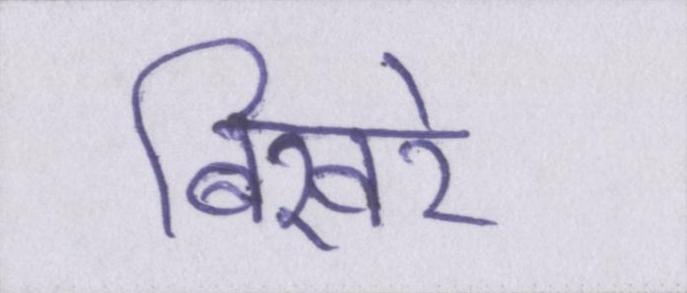 बिखरे